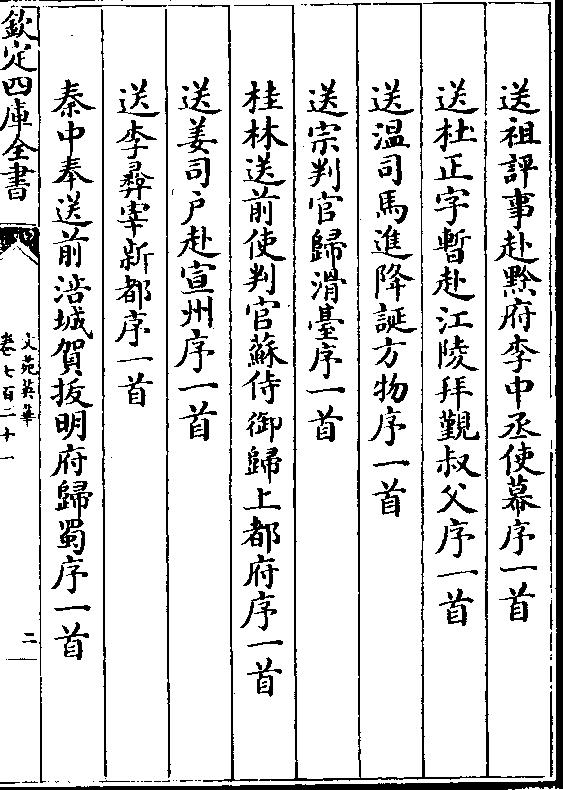 送祖評事赴黔府李中丞使幕序一首
送杜正字暫赴江陵拜覲叔父序一首
送温司馬進降誕方物序一首
送宗判官歸滑臺序一首
桂林送前使判官蘇侍御歸上都府序一首
送姜司户赴宣州序一首
送李彛宰新都序一首
秦中奉送前涪城賀拔明府歸蜀序一首
欽定四庫全書
文苑英華
卷七百二十一
二